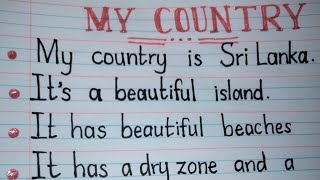 MY COUNTRY
My country is Sri Lanka.
It's a beautiful island.
It has beautiful beaches
It has a dry zone and a